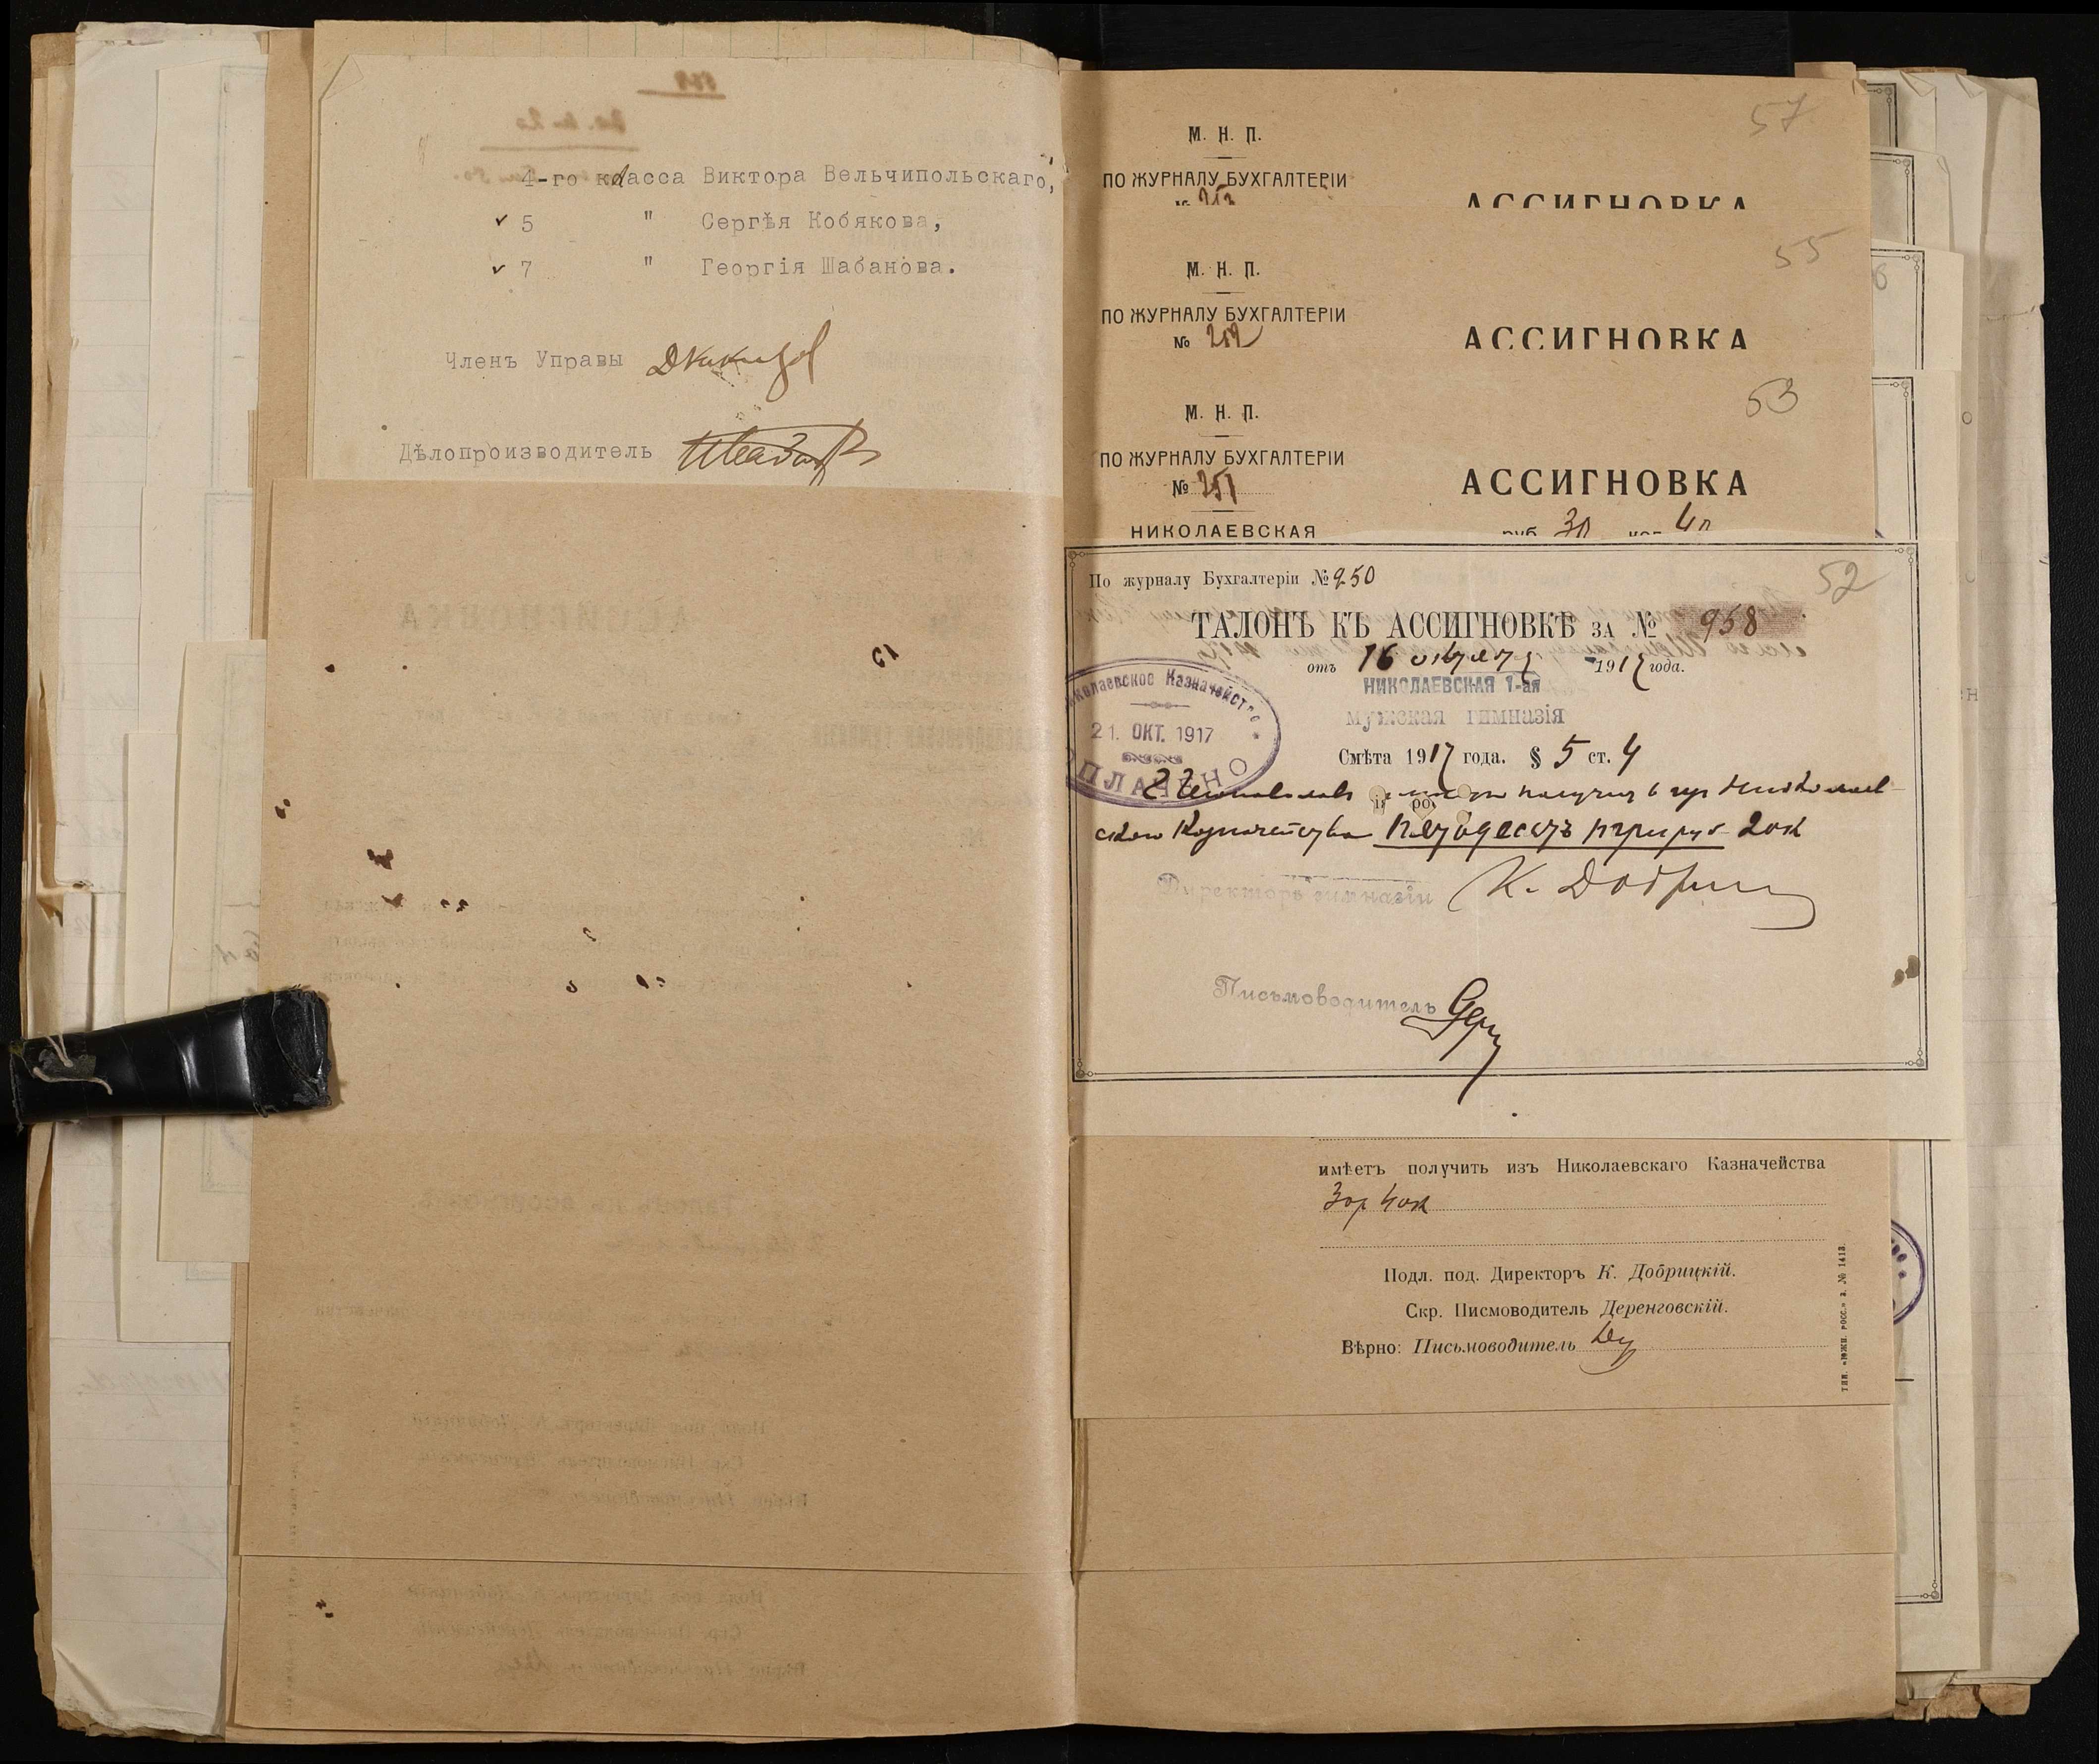 4-го класса Виктора Вельчипольскаго,
5 " Сергѣя Кобякова,
7 " Георгія Шабанова.
Членъ Управы
Дѣлопроизводитель
57
М. Н. П.
ПО ЖУРНАЛУ БУХГАЛТЕРІИ
№ 253
АССИГНОВКА
55
М. Н. П.
ПО ЖУРНАЛУ БУХГАЛТЕРІИ
№ 252
АССИГНОВКА
53
М. Н. П.
ПО ЖУРНАЛУ БУХГАЛТЕРІИ
№ 251
АССИГНОВКА
НИКОЛАЕВСКАЯ
руб. 30 коп 40
52
По журналу Бухгалтеріи № 250
ТАЛОНЪ КЪ АССИГНОВКѢ ЗА № 958
отъ 16 октября 1917 года.
НИКОЛАЕВСКАЯ 1-ая
мужская гимназія
Николаевское Казначейство
21. ОКТ. 1917
ОПЛАЧЕНО
Смѣта 1917 года. § 5 ст. 4
получить изъ Николаев-
скаго Казначейства Пятьдесятъ три руб 20к
Директоръ гимназіи К. Добрицкій
Письмоводитель
имѣетъ получить изъ Николаевскаго Казначейства
30р 40к
Подл. под. Директоръ К. Добрицкій.
Скр. Писмоводитель Деренговскій.
Вѣрно: Письмоводитель
ТИП. «ЮЖН. РОСС.» З. № 1413.